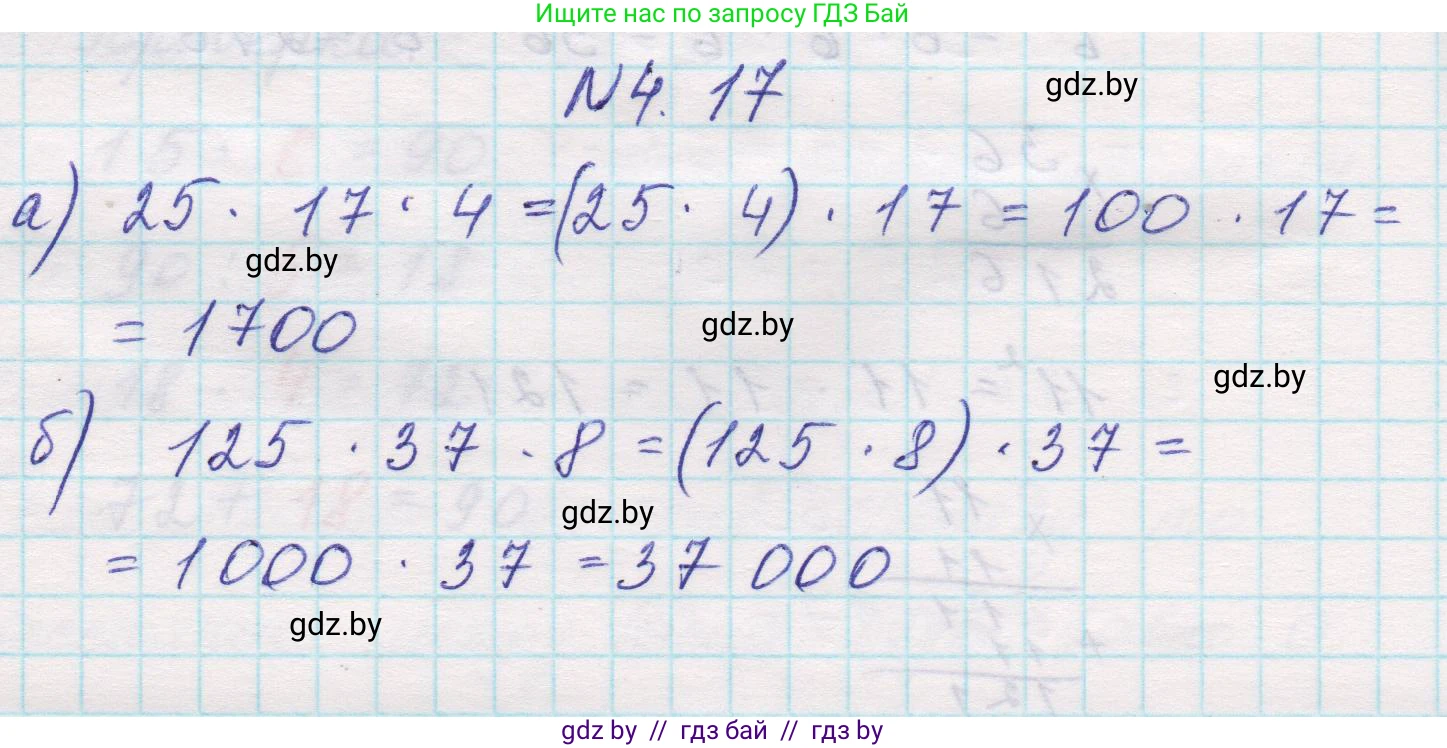 Ищите нас по запросу ГДЗ Бай
N 4. 17
gdz.by
а) 25 · 17 · 4 = (25 · 4) · 17 = 100 · 17 =
gdz.by
= 1700
gdz.by
gdz.by
б) 125 · 37 · 8 = (125 · 8) · 37 =
gdz.by
= 1000 · 37 = 37 000
gdz.by
gdz by // гдз бай // гдз by